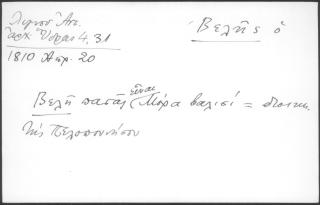 Λιγνοῦ Ἀντ.
Ἀρχ. Ὕδρας 4, 31
1810 Ἀπρ. 20
Βελῆς ὁ
Βελῆ πασᾶς εἶναι Μόρα βαλισί = διοικ.
τῆς Πελοποννήσου